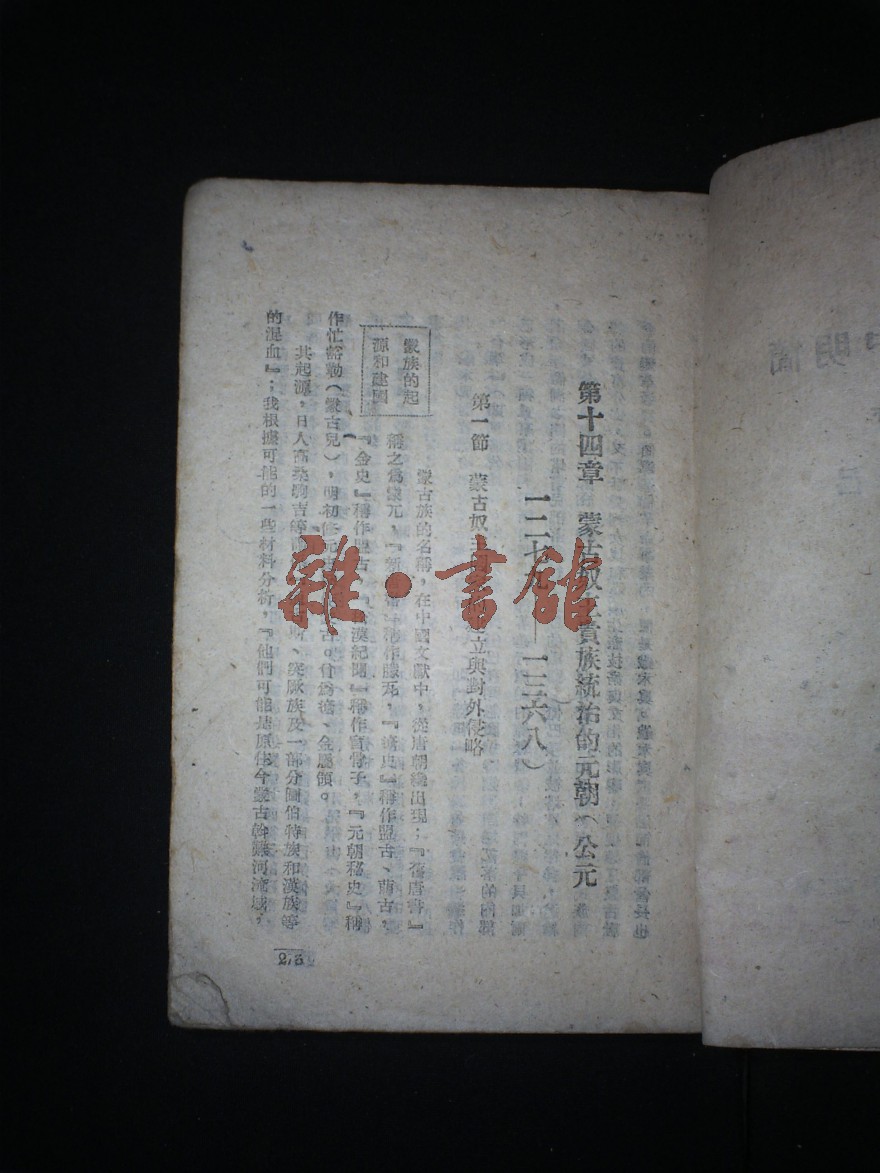 第十四章 蒙古奴主貴族統治的元朝（公元
一二七 — 一三六八）
第一節 蒙古奴 建立與對外侵略
蒙族的起
源和建國
蒙古族的名稱，在中國文獻中，從唐朝纔出現；『舊唐書』
稱之爲蒙兀，『新唐書』稱作 ，『遼史』稱作盟古、萌古，
『金史』稱作盟古， 漠紀聞』稱作盲骨子，『元朝秘史』稱
作忙豁勒（蒙古兒），明初修元史 古。
其起源，日人高桑駒吉等 、突厥族及一部分圖伯特族和漢族等
的混血』；我根據可能的一些材料分析，『他們可能是原住今蒙古斡難河流域，
雜·書館
明簡